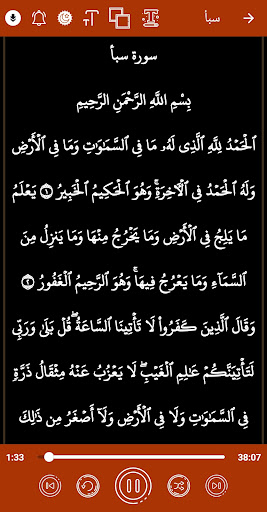 سبأ
سورة سبأ
بِسْمِ اللَّهِ الرَّحْمَٰنِ الرَّحِيمِ
الْحَمْدُ لِلَّهِ الَّذِى لَهُۥ مَا فِى السَّمَٰوَٰتِ وَمَا فِى الْأَرْضِ
وَلَهُ الْحَمْدُ فِى الْءَاخِرَةِ ۚ وَهُوَ الْحَكِيمُ الْخَبِيرُ ۝١ يَعْلَمُ
مَا يَلِجُ فِى الْأَرْضِ وَمَا يَخْرُجُ مِنْهَا وَمَا يَنزِلُ مِنَ
السَّمَآءِ وَمَا يَعْرُجُ فِيهَا ۚ وَهُوَ الرَّحِيمُ الْغَفُورُ ۝٢
وَقَالَ الَّذِينَ كَفَرُوا۟ لَا تَأْتِينَا السَّاعَةُ ۖ قُلْ بَلَىٰ وَرَبِّى
لَتَأْتِيَنَّكُمْ عَٰلِمِ الْغَيْبِ ۖ لَا يَعْزُبُ عَنْهُ مِثْقَالُ ذَرَّةٍ
فِى السَّمَٰوَٰتِ وَلَا فِى الْأَرْضِ وَلَآ أَصْغَرُ مِن ذَٰلِكَ
1:33 38:07